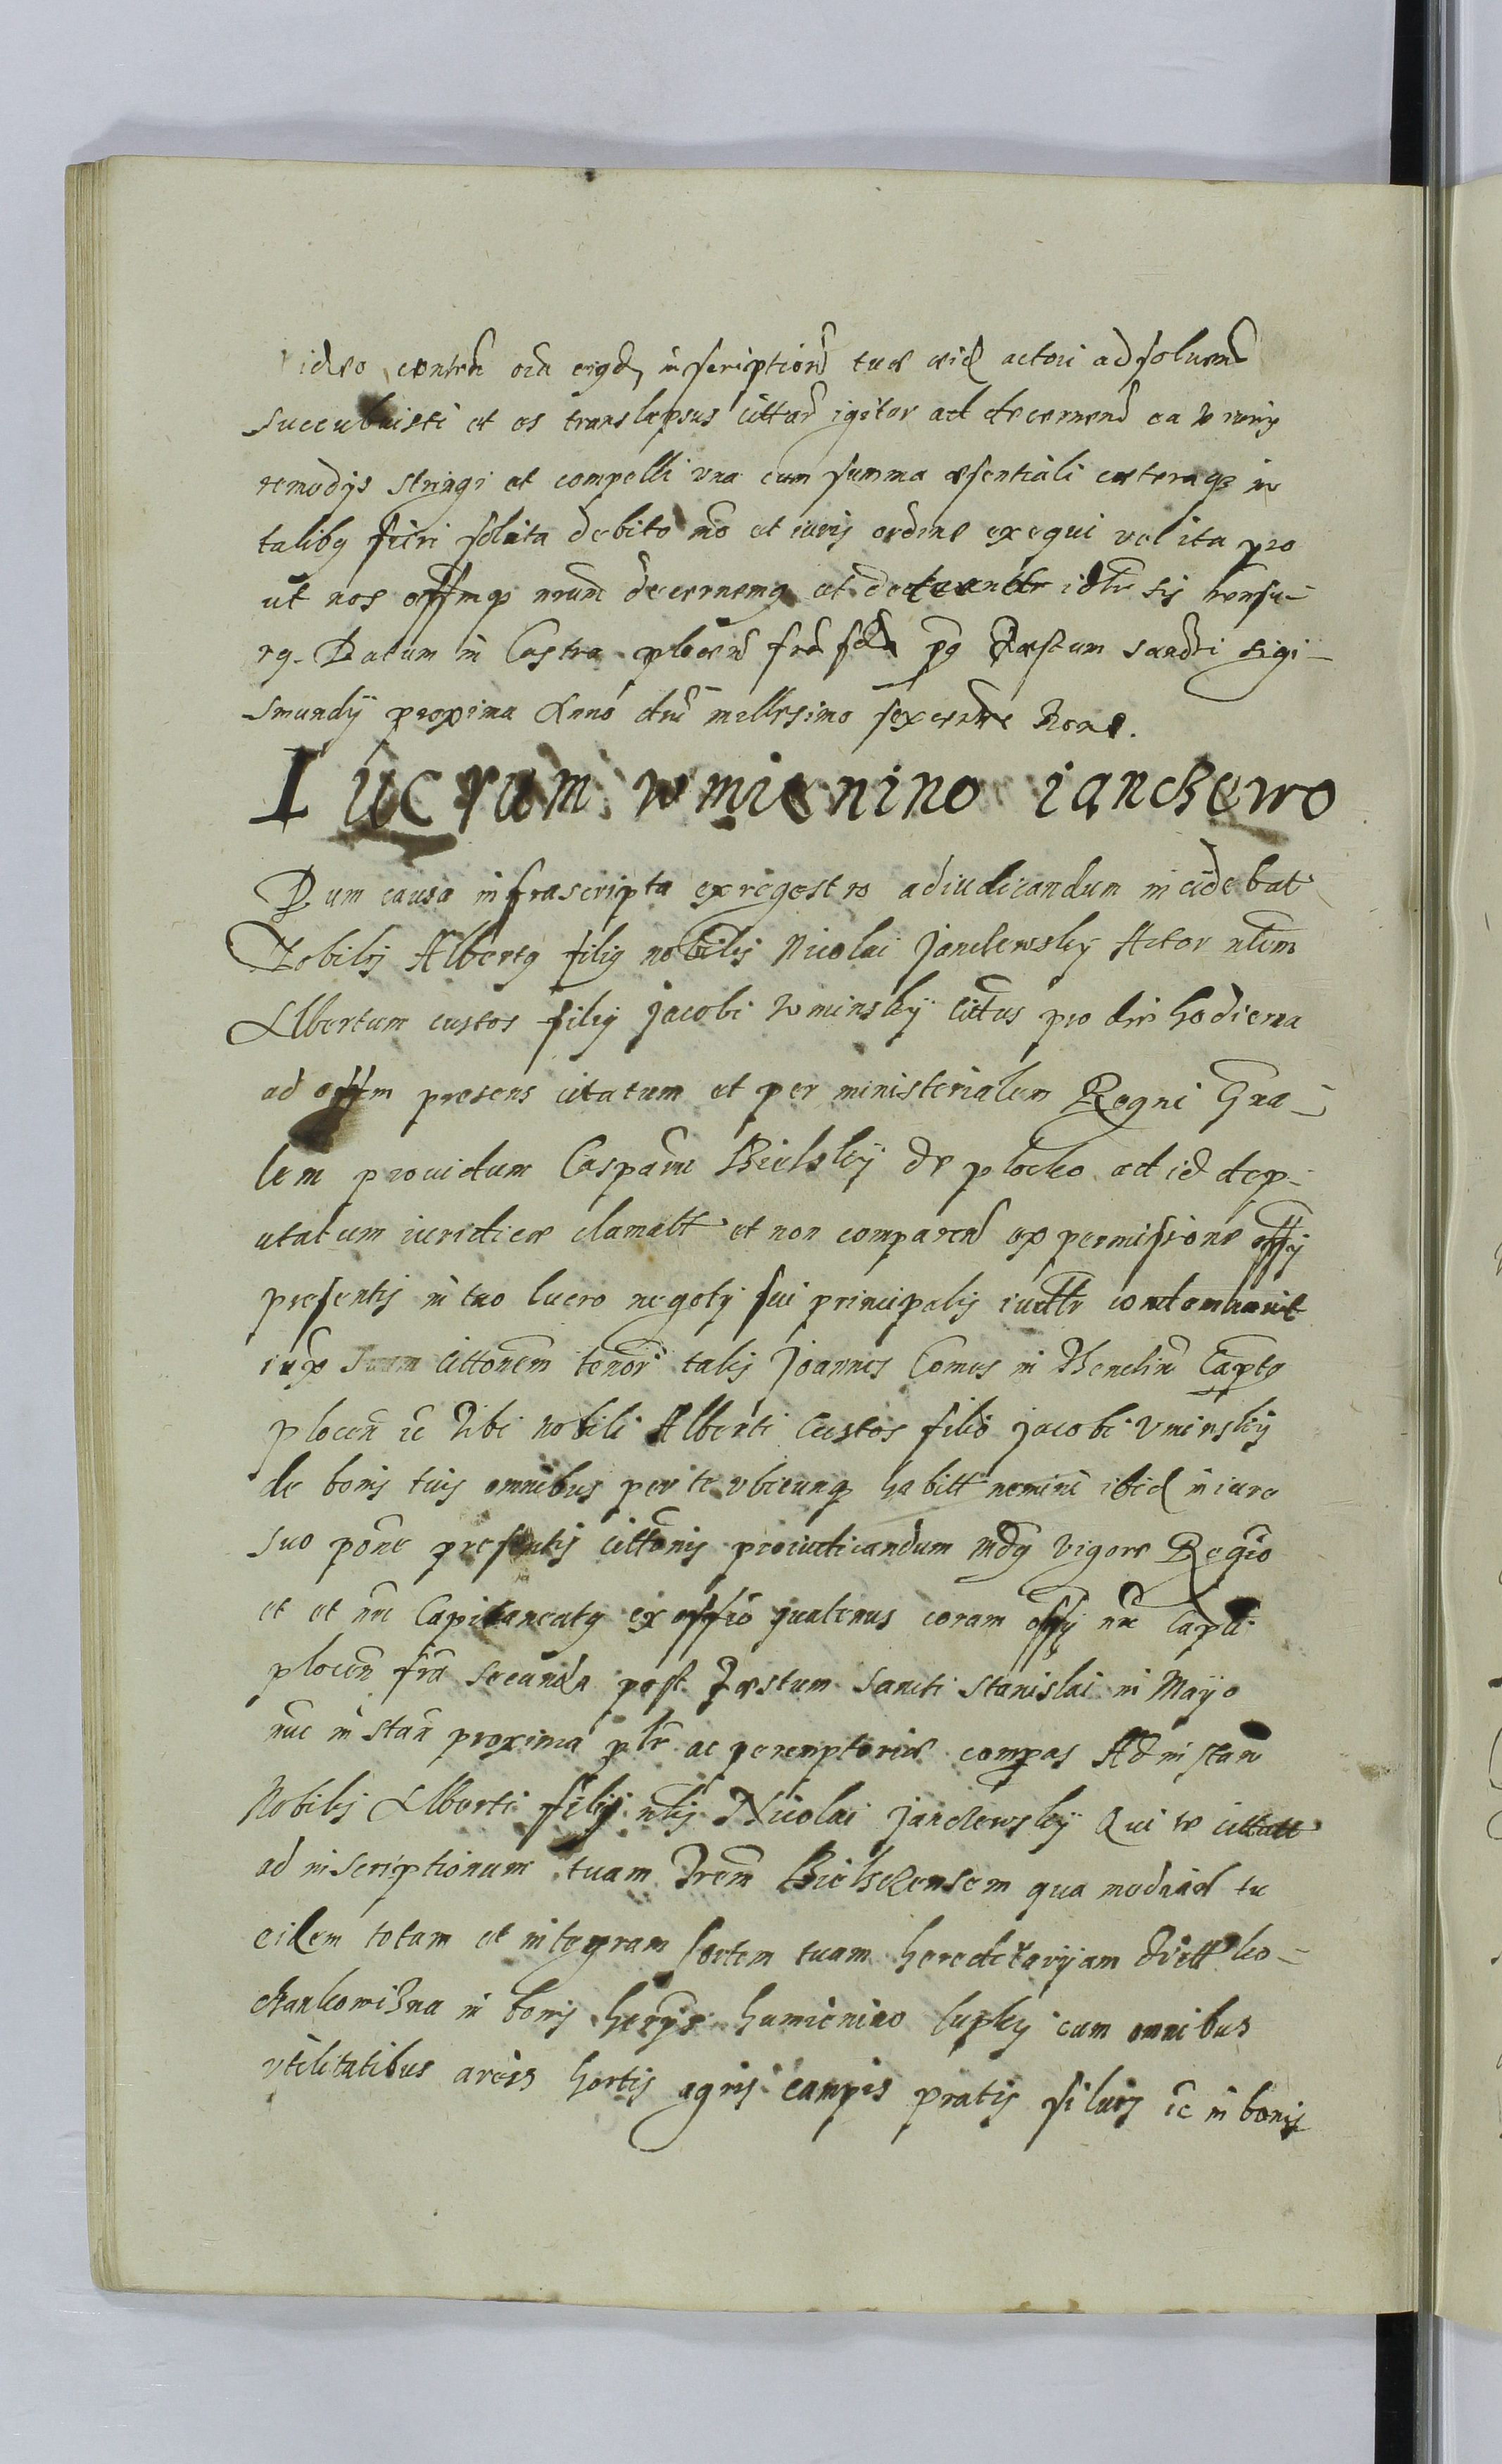 ideo contra oia eiqd inscriptioni tuae eid actori ad solvend
succubuisti et es translapsus citt igitur ad decernend ea iuris
remedys stringi et compelli vna cum summa essentiali caeteraq in
taliby fieri solita debito mo et iuris ordine exequi vel ita pro
ut nos offmq nrum decernemq et idtr sis
rq. Datum in Castro plocen fra scda pq Festum sancti sigi-
smundÿ proxima Anno dni millesimo sexcente None.
Lucrum wmienino ianckewo
Dum causa infrascripta ex regestro adiudicandum incidebat
Nobilis Albertq filiq nobilis Nicolai Janckewsky Actor nlem
Albertum custos filiq Jacobi Wminskÿ cittus pro die hodierna
ad offm presens citatum et per ministerialem Regni Gna-
lem prouidum Casparum Bielskÿ de plocko ad id dep-
utatum iuridice clamatt et non comparen ex permissione offy
presentis in tuo lucro negoty sui principalis iudtr condemnauit
iux suam cittonem tenoris talis Joannes Comes in Capts
plocen ic Tibi nobili Alberti Custos filio Jacobi Vminskÿ
de bonis tuis omnibus per te vbicunq habitt nemini ibid in iure
suo pone presentis cittonis preiudicandum mdq vigore Regio
et et nre Capitaneatq ex offio quatenus coram offy nre Capli
plocen fra secunda post Festum sancti Stanislai in Mayo
nuc instan proxima plr ac peremptorie compas Ad instan
Nobilis Alberti filij nlis Nicolai Janckewskÿ Qui te cittatt
ad inscriptionem tuam Trem Bielscensem qua mediad tu
eidem totam et integram sortem tuam hereditariam ko-
chankowizna in bonis hamienino lupky cum omnibus
vtilitatibus areis hortis agris campis pratis siluis ic in bonis